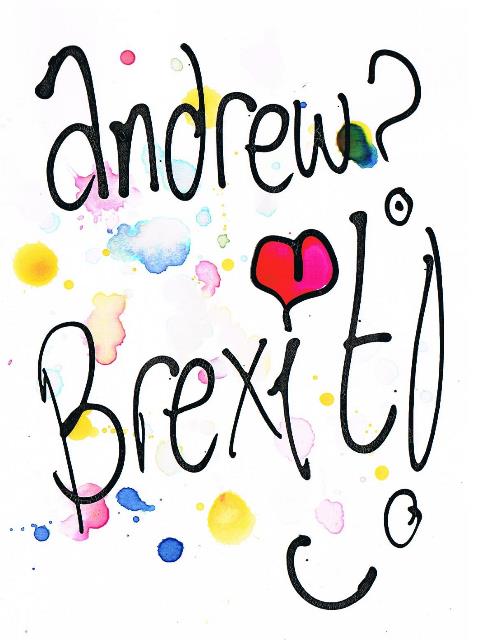 andrew?
Brexit!